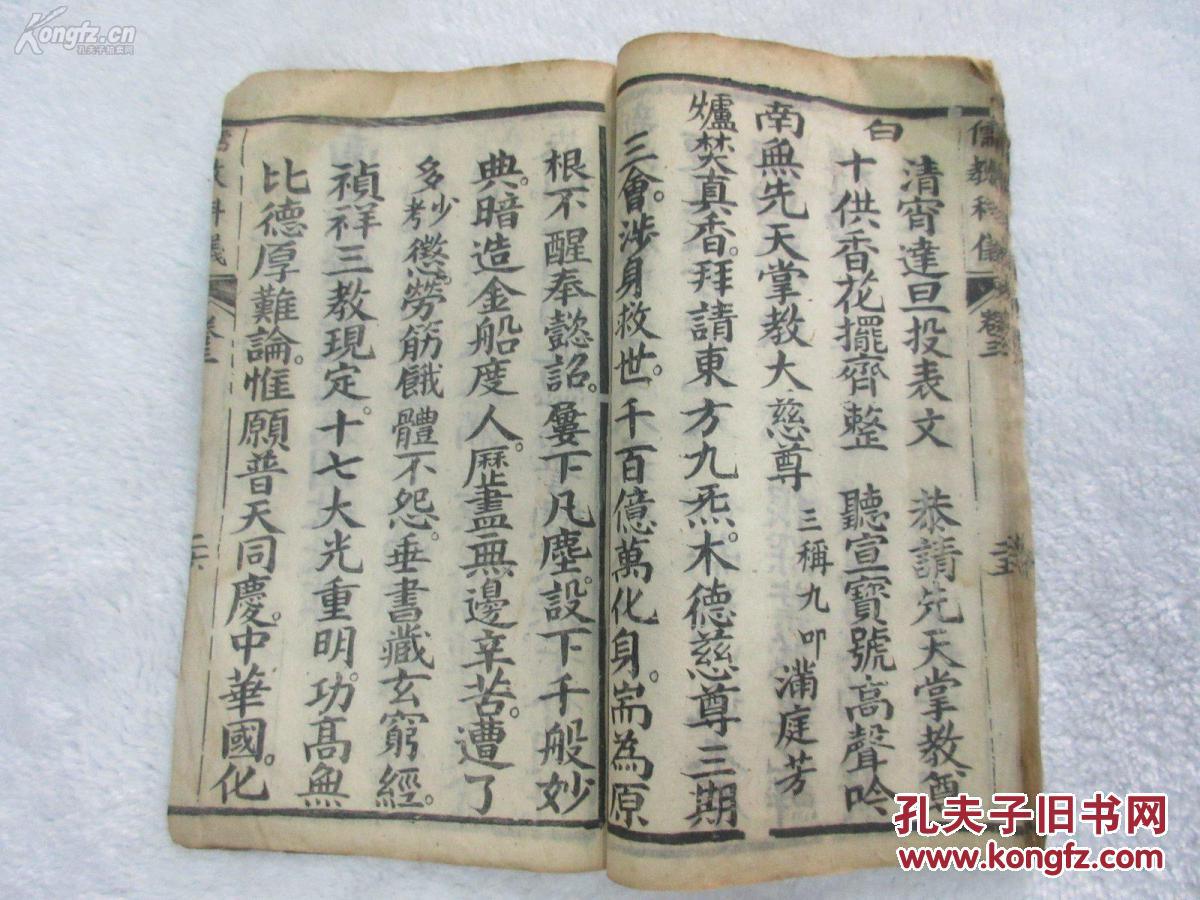 Kongfz.cn
孔夫子拍卖网
儒教科儀 卷三
清宵達旦投表文 恭請先天掌教尊
十供香花擺齊整 聽宣寶號高聲吟
白
南無先天掌教大慈尊 三稱九叩 滿庭芳
爐焚真香。拜請東方九炁。木德慈尊三期
三會。涉身救世。千百億萬化身。耑為原
根不醒奉懿詔。屢下凡塵。設下千般妙
典。暗造金船度人。歷盡無邊辛苦。遭了
多少考懲。勞筋餓體不怨。垂書藏玄窮經。
禎祥三教現定。十七大光重明。功髙無
比德厚難論。惟願普天同慶。中華國。化
教科儀 卷三 二六
孔夫子旧书网
www.kongfz.com